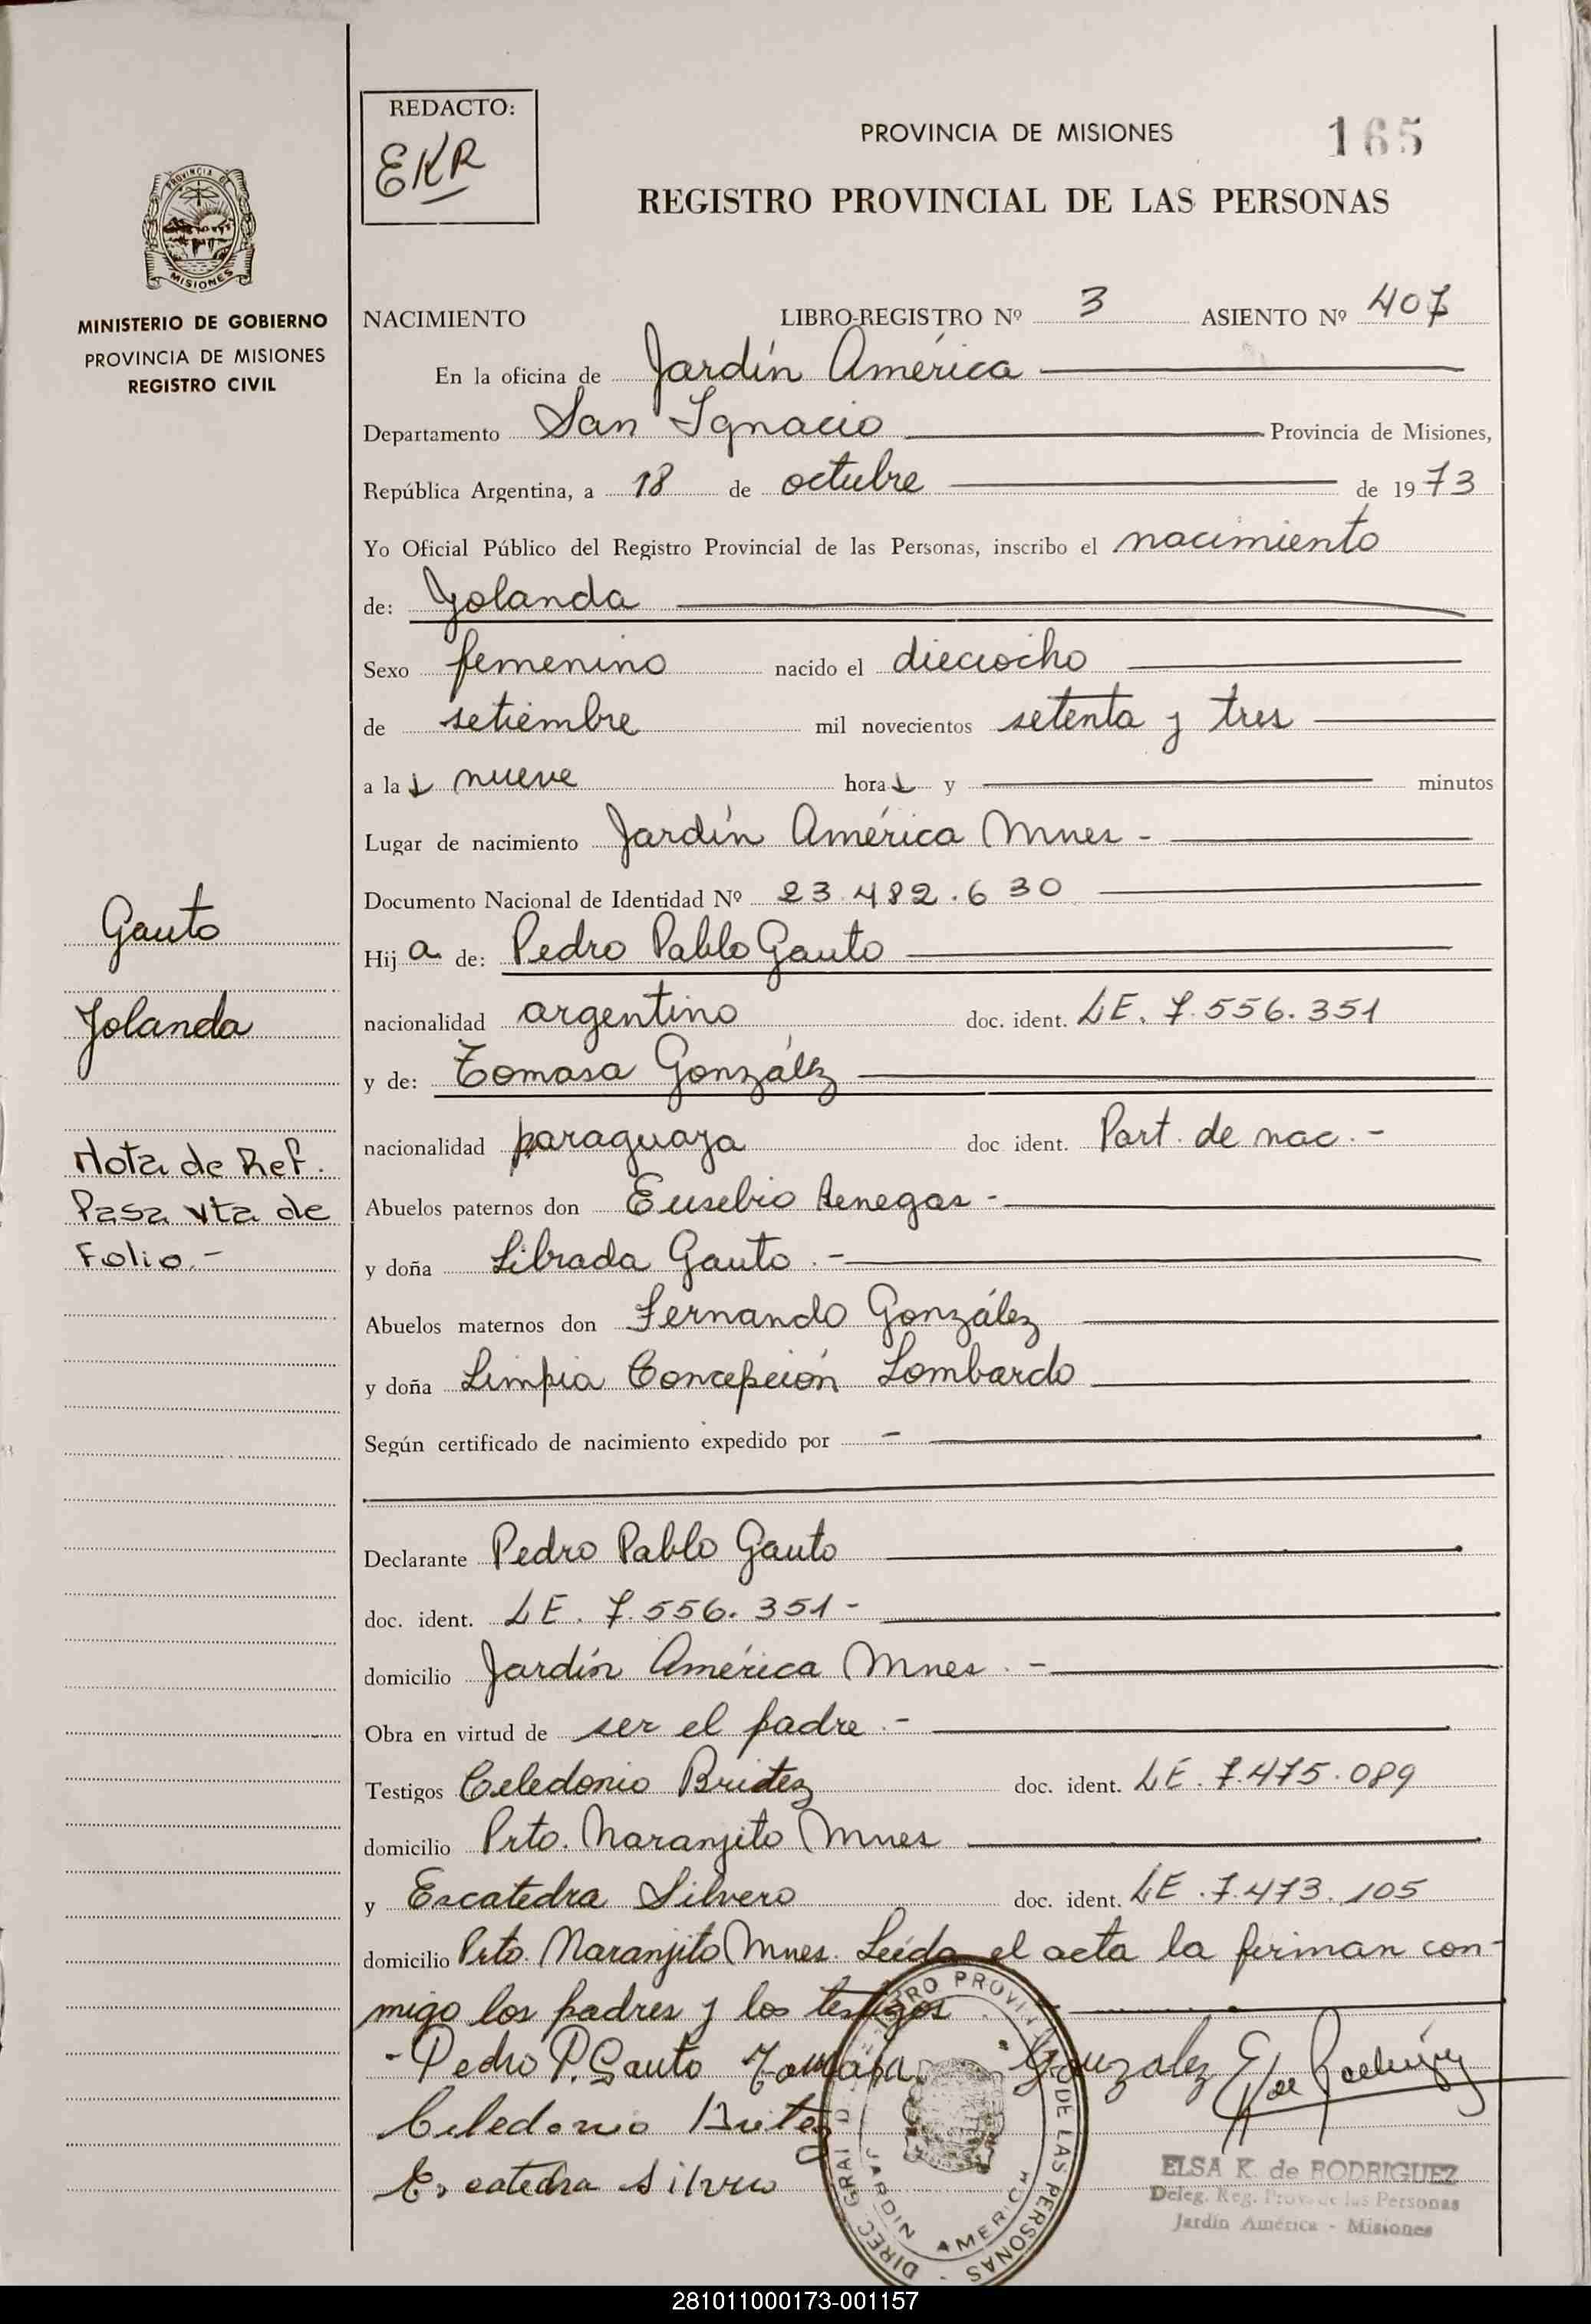 REDACTO:
EKR
PROVINCIA DE MISIONES
165
REGISTRO PROVINCIAL DE LAS PERSONAS
PROVINCIA DE
MISIONES
MINISTERIO DE GOBIERNO
PROVINCIA DE MISIONES
REGISTRO CIVIL
NACIMIENTO LIBRO-REGISTRO Nº 3 ASIENTO Nº 407
En la oficina de Jardín América
Departamento San Ignacio Provincia de Misiones,
República Argentina, a 18 de octubre de 1973
Yo Oficial Público del Registro Provincial de las Personas, inscribo el nacimiento
de: Yolanda
Sexo femenino nacido el dieciocho
de setiembre mil novecientos setenta y tres
a las nueve horas y minutos
Lugar de nacimiento Jardín América Mnes -
Documento Nacional de Identidad Nº 23.482.630
Hija de: Pedro Pablo Gauto
nacionalidad argentino doc. ident. LE. 7.556.351
y de: Tomasa González
nacionalidad paraguaya doc ident. Part. de nac. -
Abuelos paternos don Eusebio Benegas -
y doña Librada Gauto . -
Abuelos maternos don Fernando González
y doña Limpia Concepción Lombardo
Según certificado de nacimiento expedido por -
Declarante Pedro Pablo Gauto
doc. ident. LE. 7.556.351 -
domicilio Jardín América Mnes . -
Obra en virtud de ser el padre . -
Testigos Celedonio Britez doc. ident. LE. 7.475.089
domicilio Prto. Naranjito Mnes
y Escatedra Silvero doc. ident. LE. 7.473.105
domicilio Prto. Naranjito Mnes. Leída el acta la firman con-
migo los padres y los testigos
- Pedro P. Gauto Tomasa Gonzalez E K de Rodríguez
Celedonio Britez
Escatedra Silvero
Gauto
Yolanda
Nota de Ref.
Pasa vta de
Folio. -
DIREC GRAL D REGISTRO PROVIN DE LAS PERSONAS
JARDIN AMERICA
ELSA K. de RODRIGUEZ
Deleg. Reg. Prov. de las Personas
Jardín América - Misiones
281011000173-001157